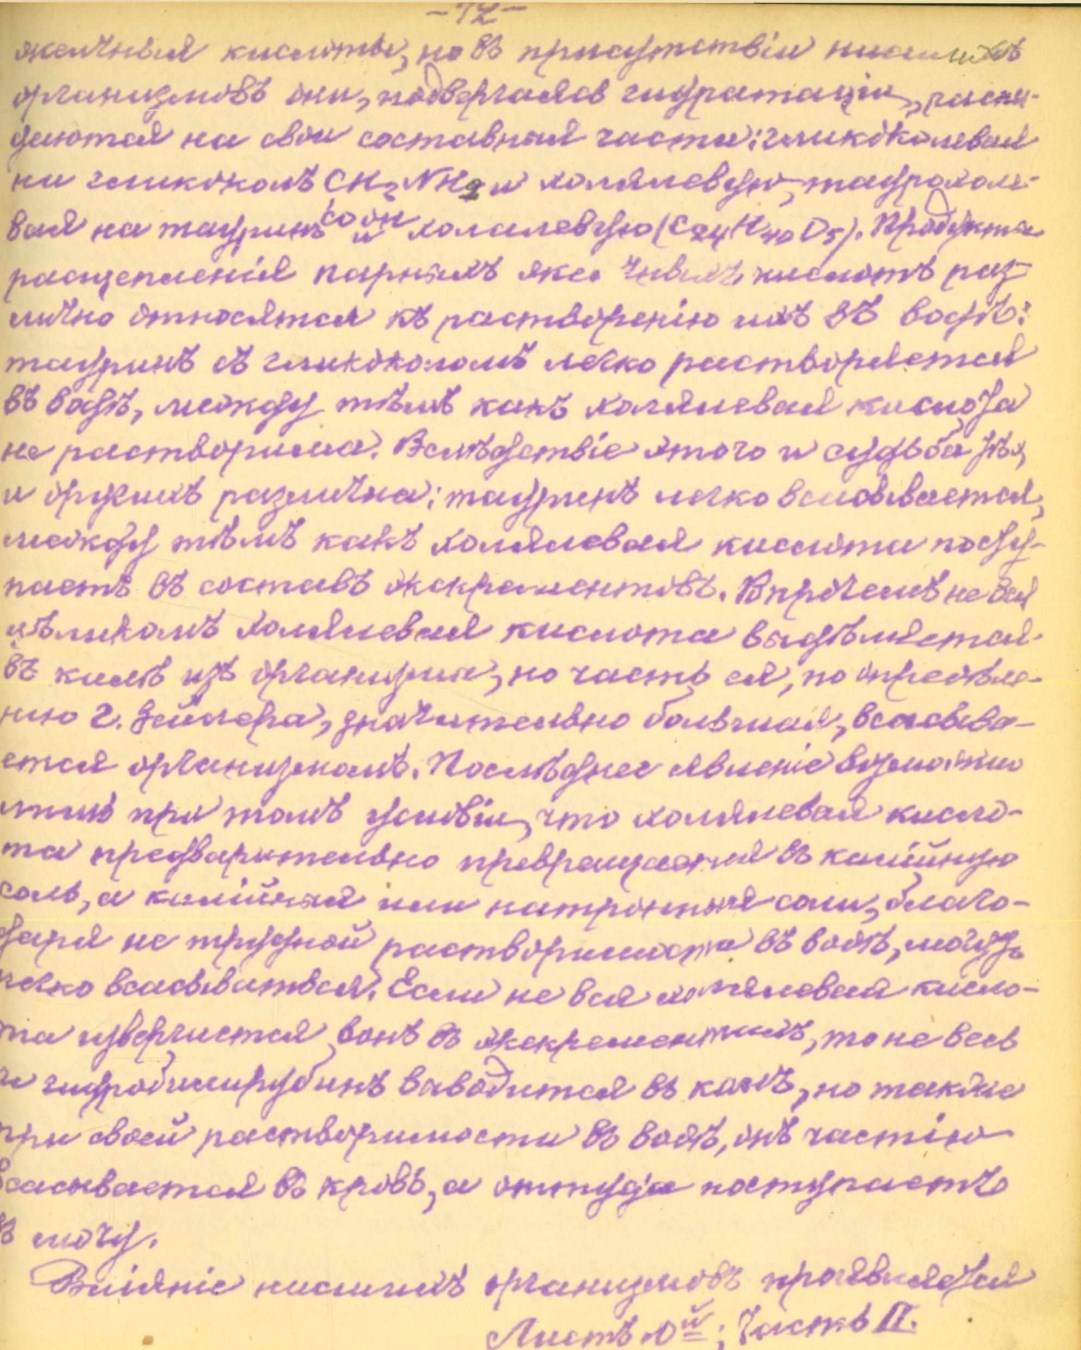 -72-
желчныя кислоты, но въ присутствіи низшихъ
организмовъ они, подвергаясь гидратаціи, распа-
даются на свои составныя части: гликоколевая
на гликоколъ CH2NH2 и холялевую, таурохоле-
COOH
вая на тауринъ и холалевую (C24H40O5). Продукты
расщепленія парныхъ желчныхъ кислотъ раз-
лично относятся къ растворенію ихъ въ водѣ:
тауринъ съ гликоколомъ легко растворяется
въ водѣ, между тѣмъ какъ холялевая кислота
не растворима. Вслѣдствіе этого и судьба тѣхъ
и другихъ различна: тауринъ легко всасывается,
между тѣмъ какъ холялевая кислота посту-
паетъ въ составъ экскрементовъ. Впрочемъ не вся
цѣликомъ холялевая кислота выдѣляется
въ калѣ изъ организма, но часть ея, по опредѣле-
нію Г. Зейлера, значительно большая, всасыва-
ется организмомъ. Послѣднее явленіе возможно
лишь при томъ условіи, что холялевая кисло-
та предварительно превращается въ калійную
соль, а калійная или натронныя соли, благо-
даря не трудной растворимости въ водѣ, могутъ
легко всасываться. Если не вся холялевая кисло-
та извергается вонъ въ экскрементахъ, то не весь
и гидробилирубинъ выводится въ калъ, но также
при своей растворимости въ водѣ, онъ частію
всасывается въ кровь, а оттуда поступаетъ
въ мочу.
Вліяніе низшихъ организмовъ проявляется
Листъ 10й; Часть II.